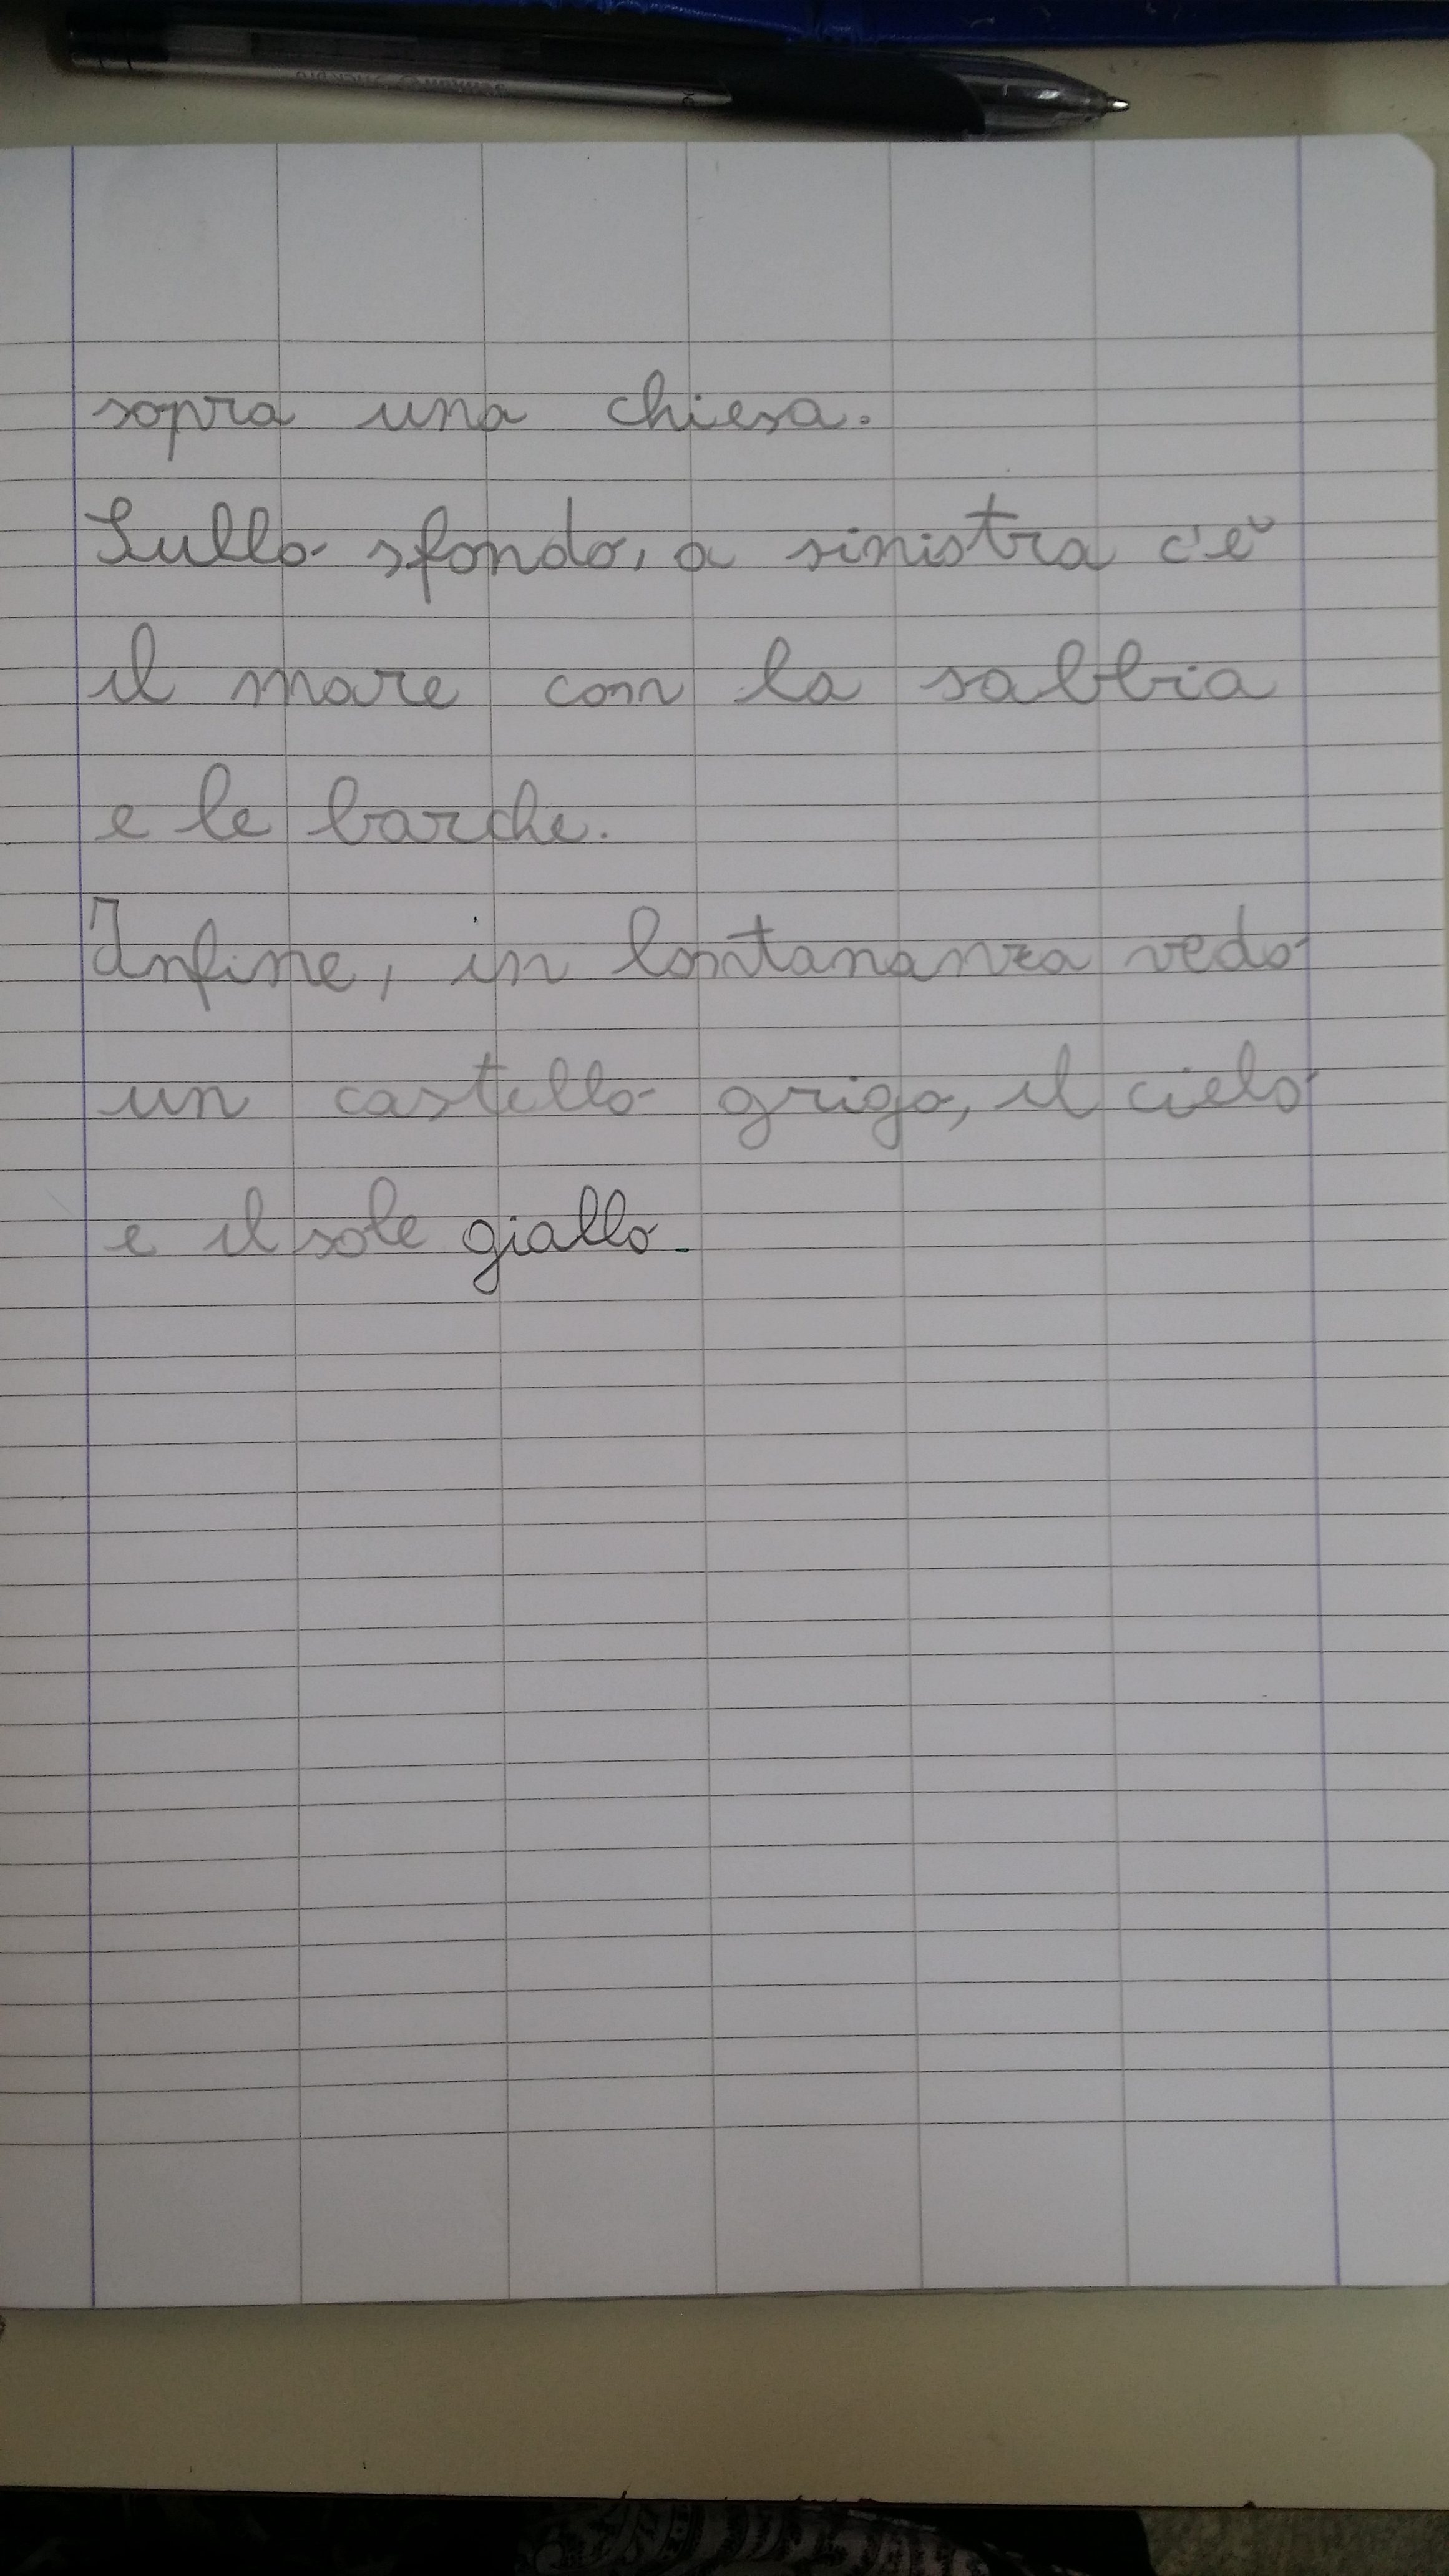 sopra una chiesa.
Sullo sfondo, a sinistra c'è
il mare con la sabbia
e le barche.
Infine, in lontananza vedo
un castello grigo, il cielo
e il sole giallo.